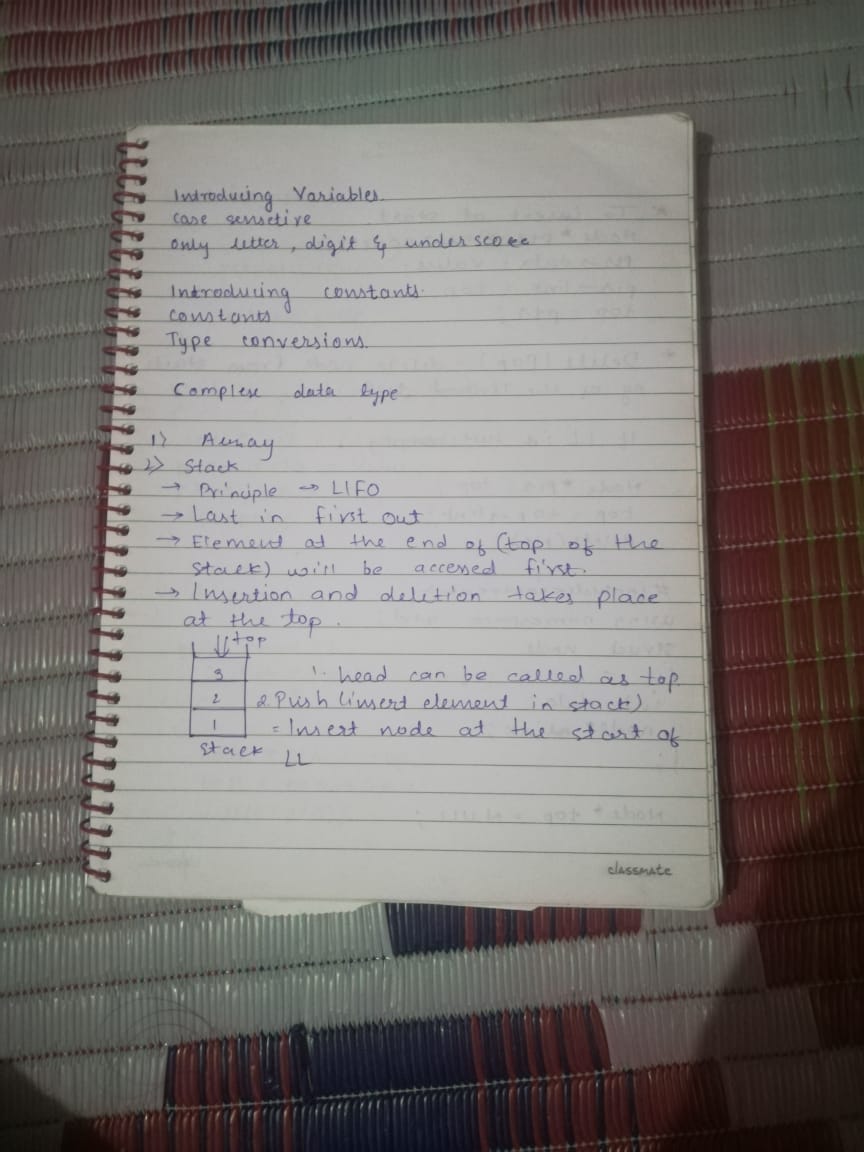 Introducing Variables.
case sensetive
only letter, digit & under score
Introducing constants.
constants
Type conversions.
Complex data type
1) Array
2) Stack
→ Principle → LIFO
→ Last in first out
→ Element at the end of (top of the
stack) will be accessed first.
→ Insertion and deletion takes place
at the top.
top
3
2
1
stack
1. head can be called as top.
2. Push (insert element in stack)
= Insert node at the start of
LL
classmate